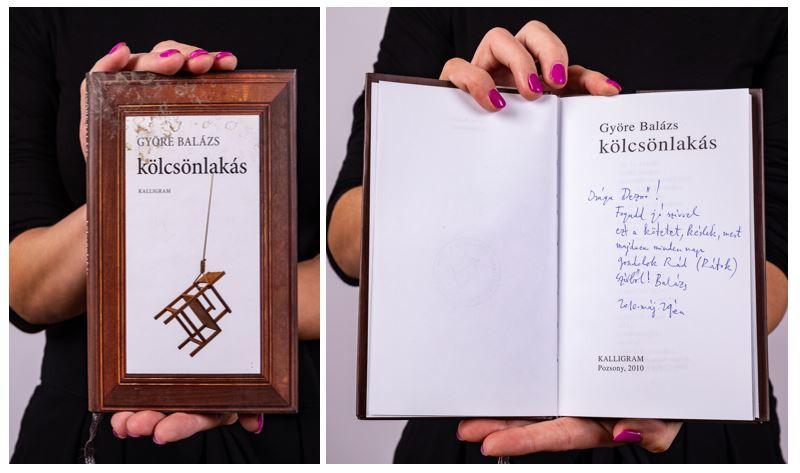 GYŐRE BALÁZS
kölcsönlakás
KALLIGRAM
Győre Balázs
kölcsönlakás
Drága Dezső!
Fogadd jó szívvel
ezt a kötetet, kérlek, mert
majdnem minden nap
gondolok Rád (Rátok)
szívből! Balázs
2010. máj. 29én
KALLIGRAM
Pozsony, 2010